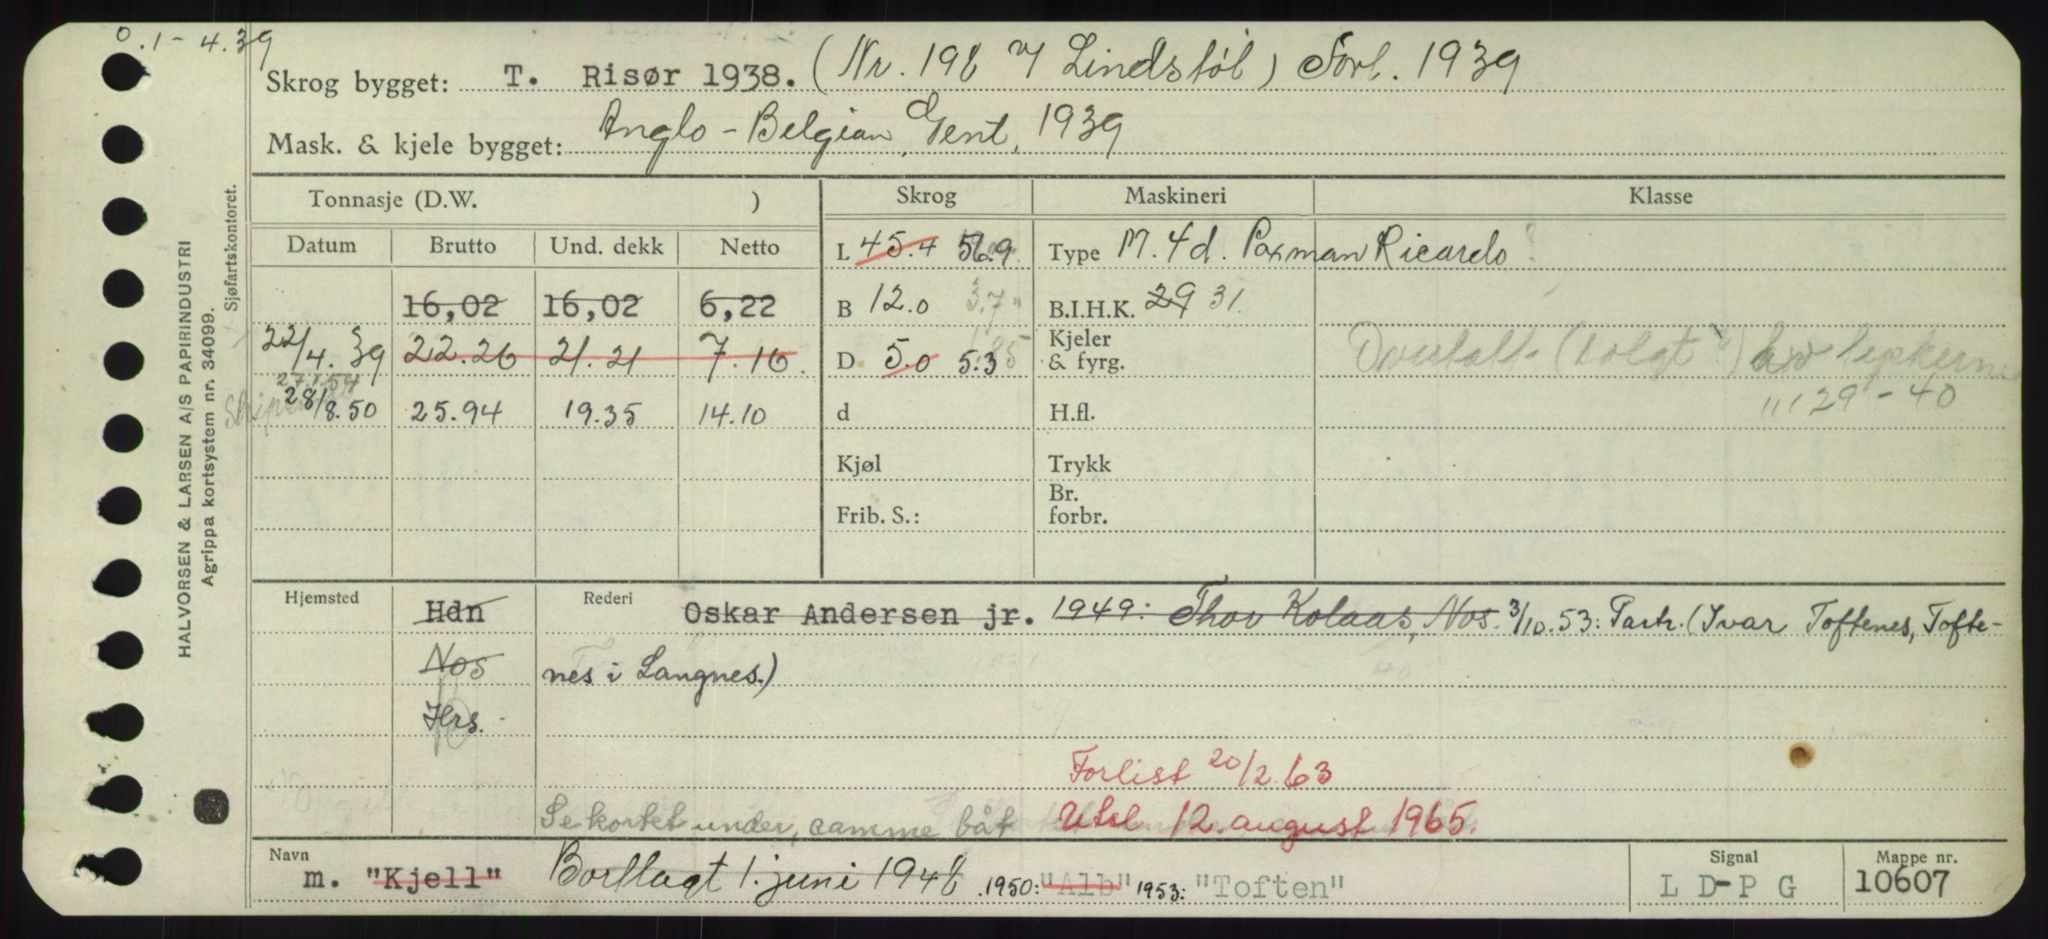 0.1-4.39
Skrog bygget: T. Risør 1938. (Nr. 196 Lindstøl) Forl. 1939
Mask. & kjele bygget: Anglo-Belgian, Gent, 1939
HALVORSEN & LARSEN A/S PAPIRINDUSTRI
Agrippa kortsystem nr. 34099.
Sjøfartskontoret.
Tonnasje (D.W. ) Skrog Maskineri Klasse
Datum Brutto Und. dekk Netto L 45.4 56.9 Type M. 4d. Paxman Ricardo
16,02 16,02 6,22 B 12.0 3.7 B.I.H.K. 29 31.
22/4.39 22.26 21.21 7.16 D 5.0 5.3 Kjeler & fyrg.
27.1.54
28/8.50 25.94 19.35 14.10 d H.fl. 29-40
Kjøl Trykk
Frib. S.: Br. forbr.
Hjemsted Hdn Rederi Oskar Andersen jr. 1949: Thor Kolaas, Nos. 3/10.53: Partr. (Ivar Toftenes, Tofte-
Nos nes i Langnes.)
Hrs.
Forlist 20/2.63
Se kortet under, samme båt Utsl 12. august 1965.
Navn m. "Kjell" Bortlagt 1. juni 1946 .1950: "Alb" 1953: "Toften" Signal L D-P G Mappe nr. 10607